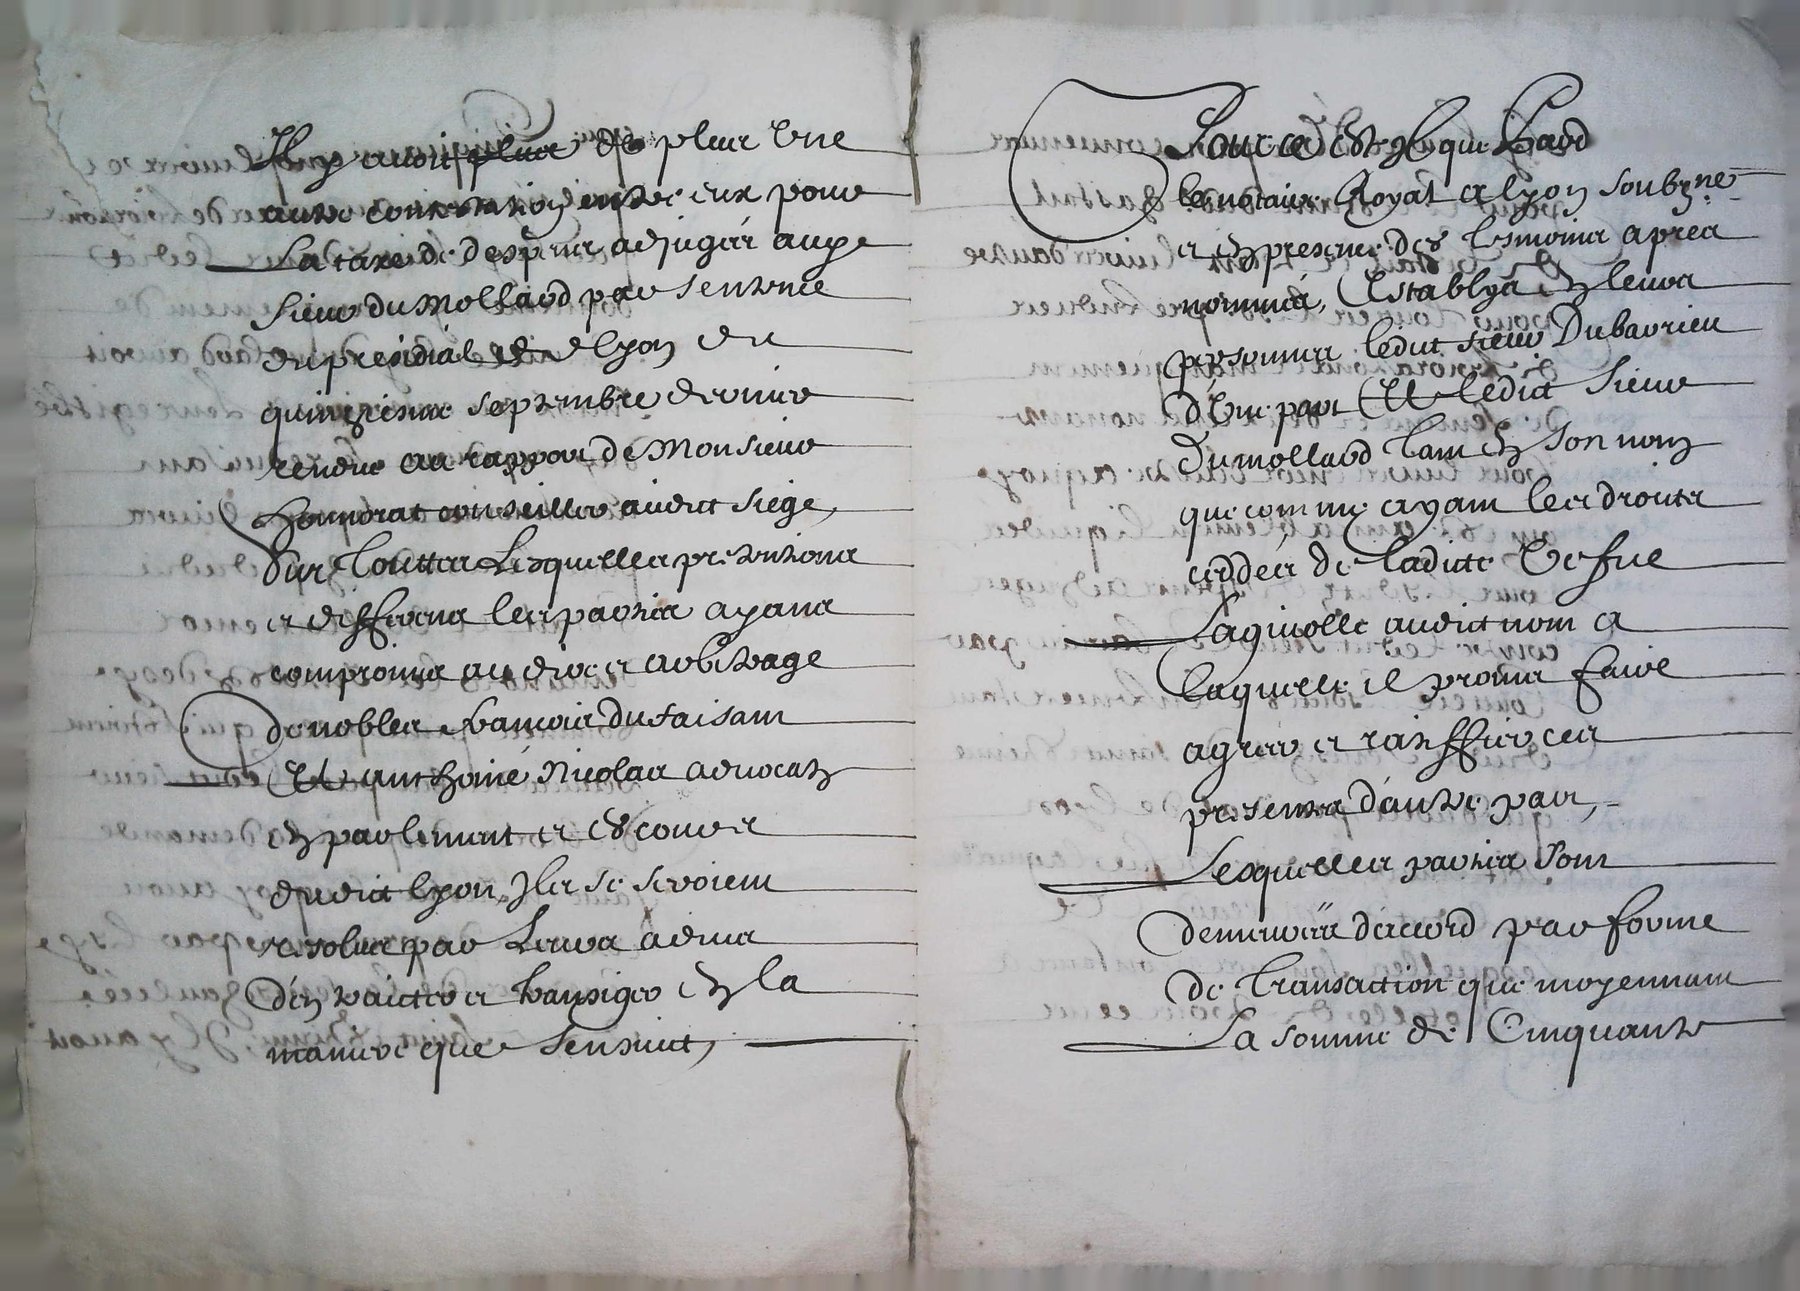 Il y avoit de plus une
autre contestation entre eux pour
La taxe de despens adjugés auxe
Sieur du Mollard par sentence
du presidial de Lyon du
quinziesme septembre dernier
rendue au rapport de Monsieur
conseiller audict siege,
Sur Touttes Lesquelles pretentions
et differens les parties ayans
compromis au dire et arbitrage
de nobles francois Dufaisant
Et anthoine Nicolas advocatz
en parlement et es cours
dudict Lyon, Ils se seroient
resolus par Leurs advis
d'en traicter et transiger en la
maniere que s'ensuict,
Pour ce est il que Pard
le notaire Royal a Lyon soubzne
et en presence des tesmoins apres
nommés, Establys en leurs
personnes ledict sieur Dubarrieu
d'Une part Et ledict Sieur
Dumollard tant en son nom
que comme ayant les droits
ceddés de ladicte Vefue
Laquelle audict nom a
Laquelle il promet faire
agreer et ratiffier ces
presentes d'autre part,
Lesquelles parties sont
demeurés d'acord par forme
de transaction que moyennant
La somme de Cinquante